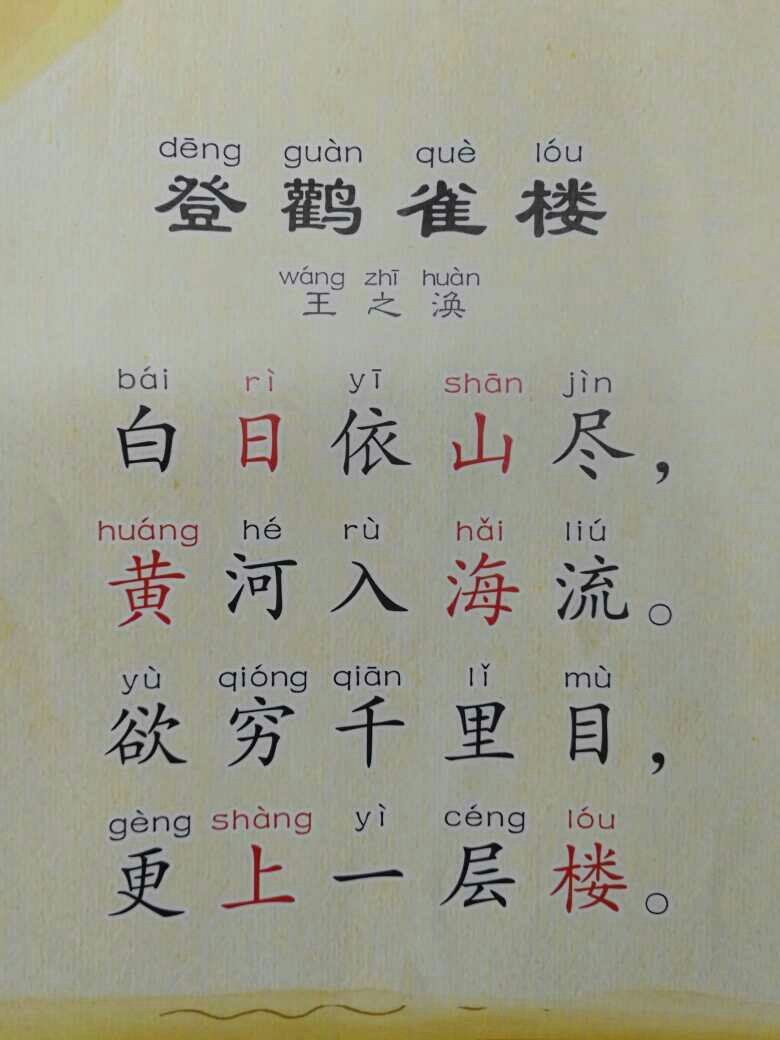 dēng guàn què lóu
登鹳雀楼
wáng zhī huàn
王之涣
bái rì yī shān jìn
白日依山尽，
huáng hé rù hǎi liú
黄河入海流。
yù qióng qiān lǐ mù
欲穷千里目，
gèng shàng yì céng lóu
更上一层楼。